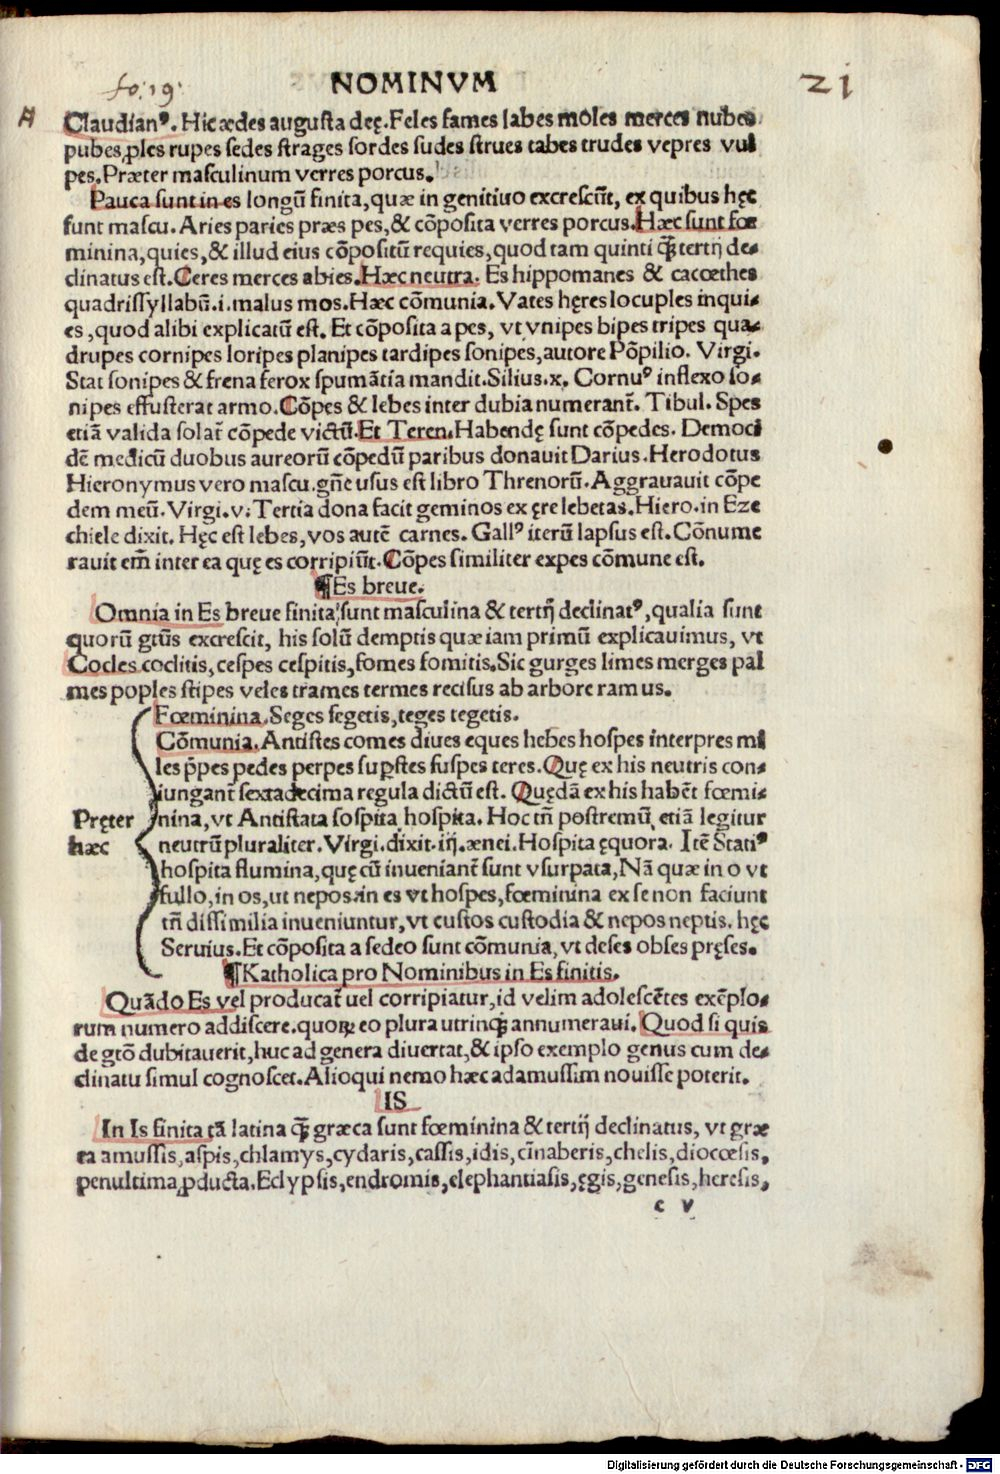 fo: 19
NOMINVM
21
A
Claudianꝰ. Hic ædes augusta deę. Feles fames labes moles merces nubes
pubes ꝓles rupes sedes strages sordes sudes strues tabes trudes vepres vul
pes. Præter masculinum verres porcus.
Pauca sunt in es longũ finita, quæ in genitiuo excrescũt, ex quibus hęc
sunt mascu. Aries paries præs pes, & cõposita verres porcus. Hæc sunt fœ
minina, quies, & illud eius cõpositũ requies, quod tam quinti q̃ tertij de-
clinatus est. Ceres merces abies. Hæc neutra. Es hippomanes & cacoethes
quadrissyllabũ .i. malus mos. Hæc cõmunia. Vates hęres locuples inqui-
es, quod alibi explicatũ est. Et cõposita a pes, vt vnipes bipes tripes qua-
drupes cornipes loripes planipes tardipes sonipes, autore Põpilio. Virgi.
Stat sonipes & frena ferox spumãtia mandit. Silius .x. Cornuꝰ inflexo so-
nipes effusterat armo. Cõpes & lebes inter dubia numerant̃. Tibul. Spes
etiã valida solat̃ cõpede victũ. Et Teren. Habendę sunt cõpedes. Democi
dẽ medicũ duobus aureorũ cõpedũ paribus donauit Darius. Herodotus
Hieronymus vero mascu. gñe usus est libro Threnorũ. Aggrauauit cõpe
dem meũ. Virgi. v: Tertia dona facit geminos ex ęre lebetas. Hiero. in Eze
chiele dixit. Hęc est lebes, vos autẽ carnes. Gallꝰ iterũ lapsus est. Cõnume
rauit em̃ inter ea quę es corripiũt. Cõpes similiter expes cõmune est.
¶Es breve.
Omnia in Es breue finita, sunt masculina & tertij declinatꝰ, qualia sunt
quorũ gtũs excrescit, his solũ demptis quæ iam primũ explicauimus, vt
Cocles coclitis, cespes cespitis, fomes fomitis. Sic gurges limes merges pal
mes poples stipes veles trames termes recisus ab arbore ramus.
Fœminina. Seges segetis, teges tegetis.
Cõmunia. Antistes comes diues eques hebes hospes interpres mi
les p̃pes pedes perpes suꝑstes suspes teres. Quę ex his neutris con-
iungant̃ sextadecima regula dictũ est. Quędã ex his habẽt fœmi-
Pręter nina, vt Antistata sospita hospita. Hoc tñ postremũ etiã legitur
hæc neutrũ pluraliter. Virgi. dixit. iij. ænei. Hospita ęquora. Itẽ Statiꝰ
hospita flumina, quę cũ inueniant̃ sunt vsurpata, Nã quæ in o vt
fullo, in os, ut nepos. in es vt hospes, fœminina ex se non faciunt
tñ dissimilia inueniuntur, vt custos custodia & nepos neptis. hęc
Seruius. Et cõposita a sedeo sunt cõmunia, vt deses obses pręses.
¶Katholica pro Nominibus in Es finitis.
Quãdo Es vel producat̃ uel corripiatur, id velim adolescẽtes exẽplo-
rum numero addiscere. quoꝝ eo plura utrinq̃ annumeraui. Quod si quis
de gtõ dubitauerit, huc ad genera diuertat, & ipso exemplo genus cum de-
clinatu simul cognoscet. Alioqui nemo hæc adamussim nouisse poterit.
IS
In Is finita tã latina q̃ græca sunt fœminina & tertij declinatus, vt græ
ca amussis, aspis, chlamys, cydaris, cassis, idis, cĩnaberis, chelis, diocœsis,
penultima ꝓducta. Eclypsis, endromis, elephantiasis, ęgis, genesis, heresis,
c v
Digitalisierung gefördert durch die Deutsche Forschungsgemeinschaft - DFG